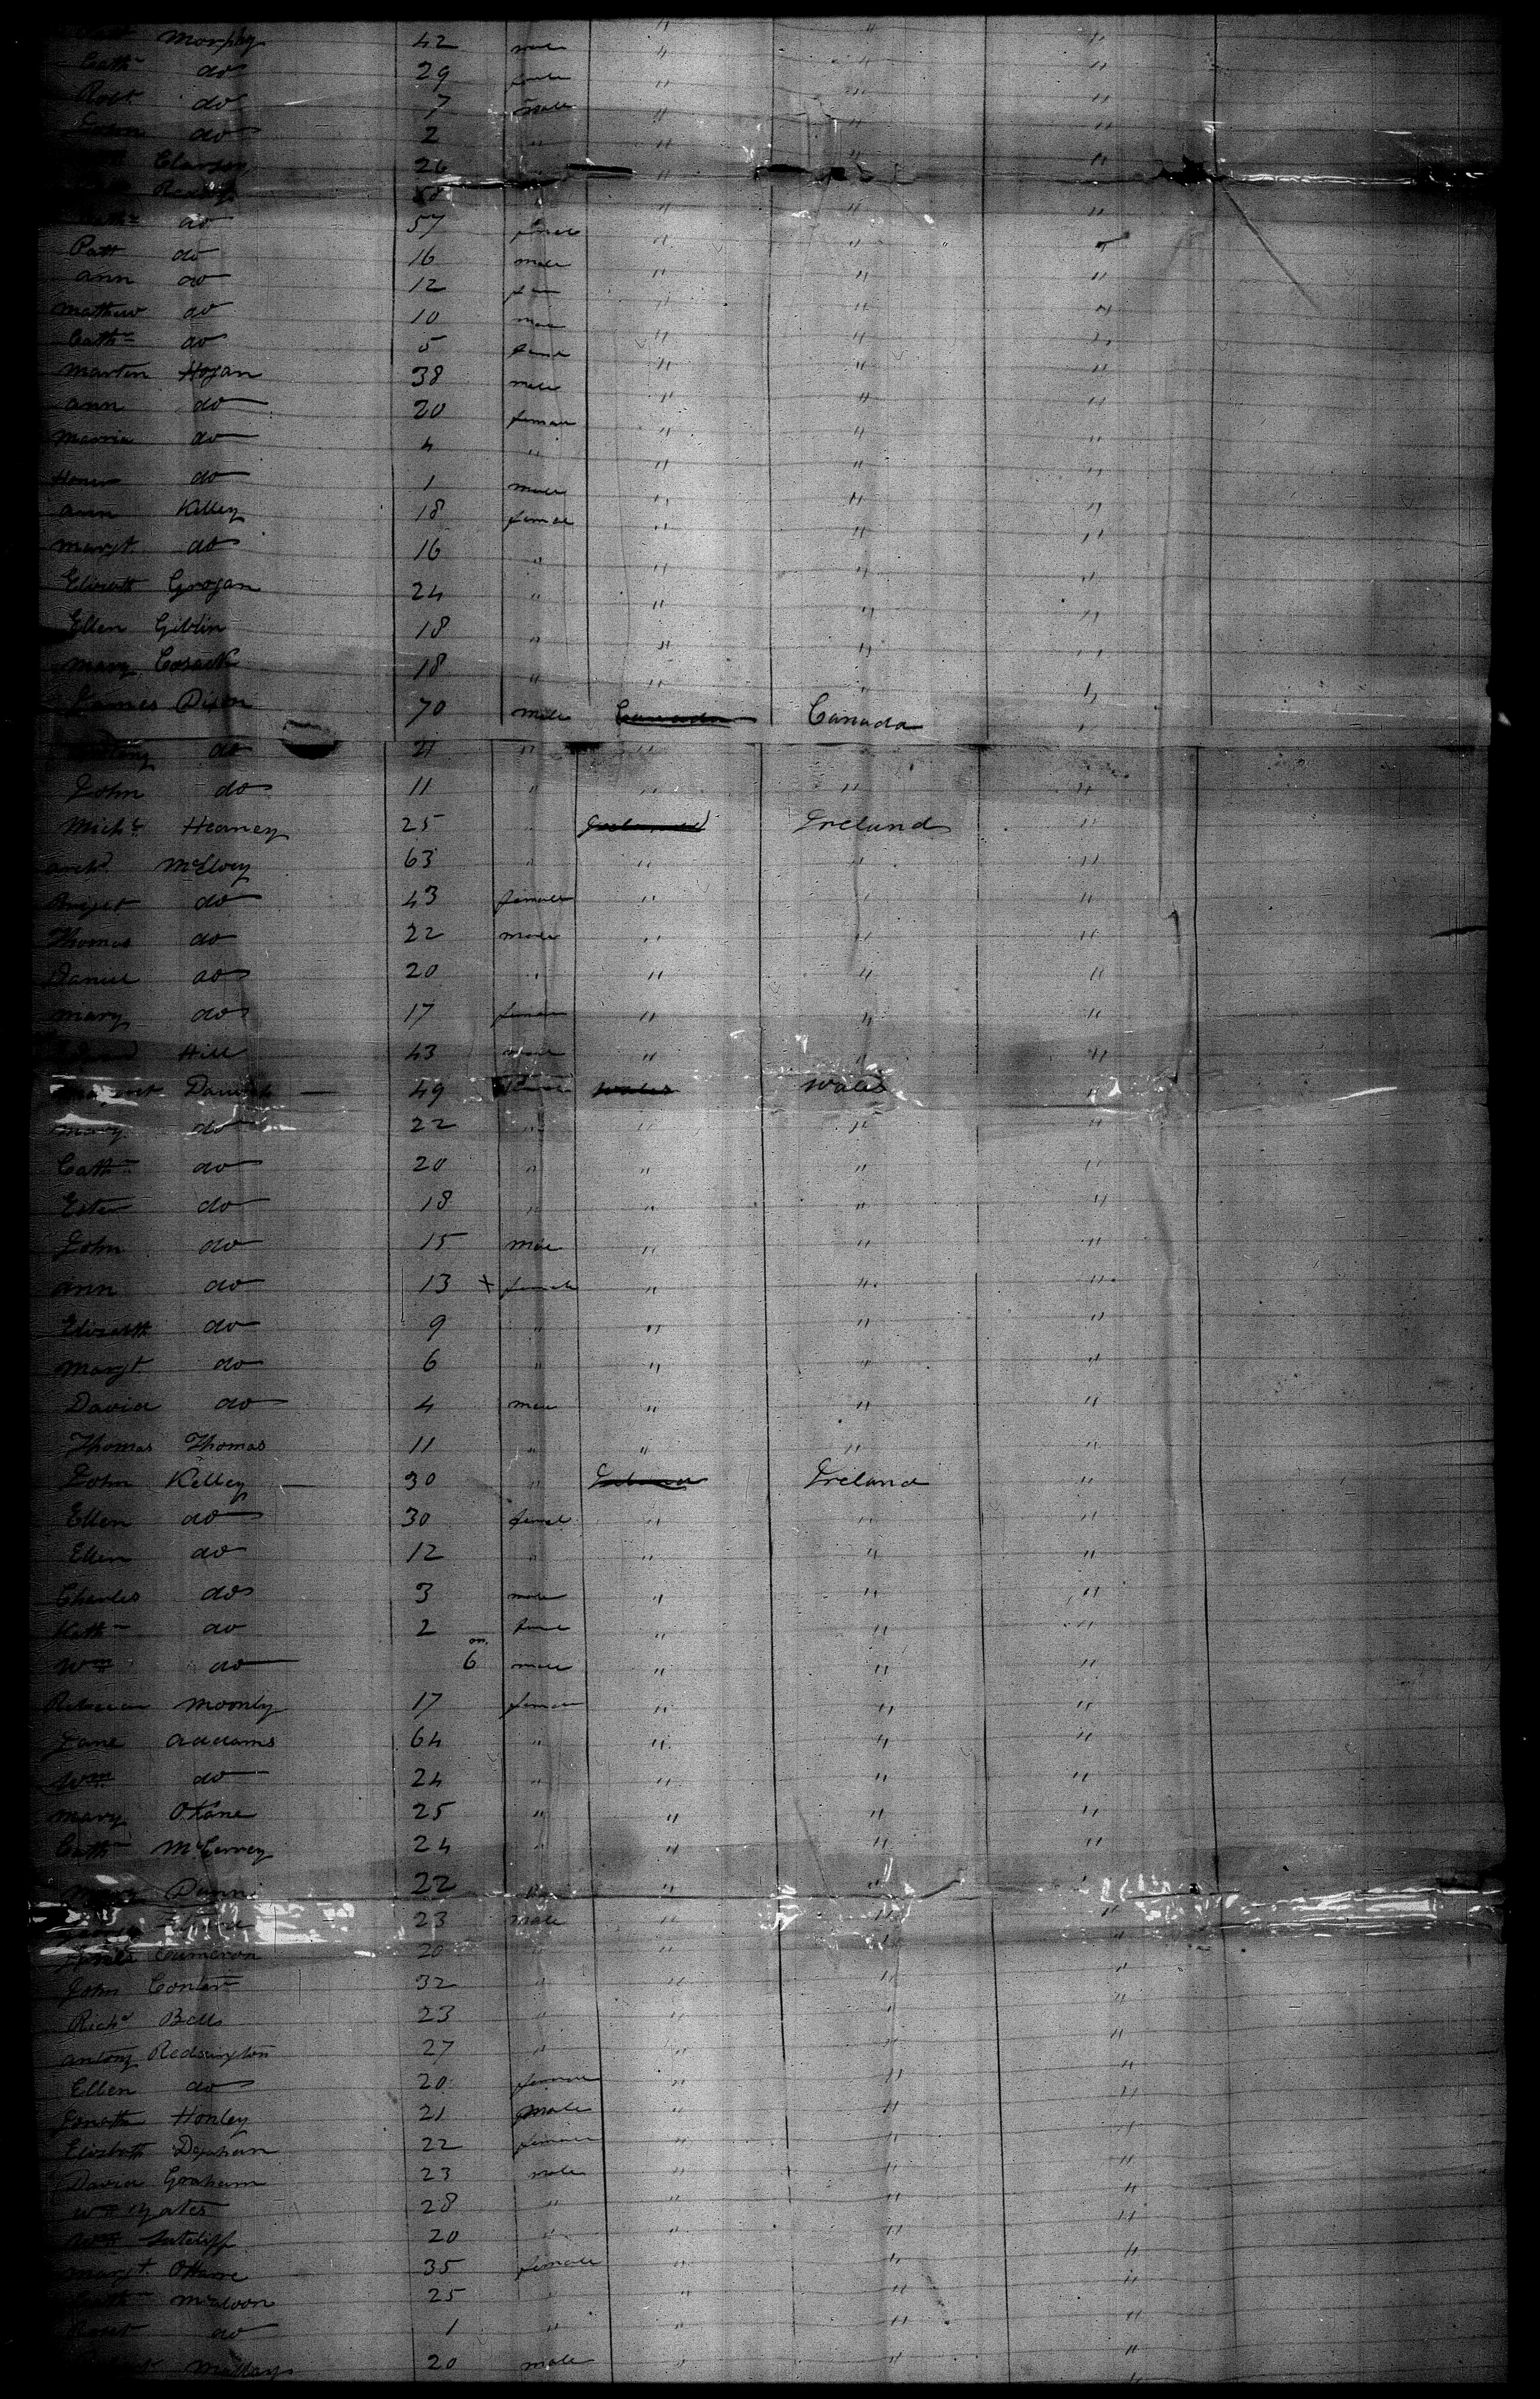 Morphy 42 male " " "
Cath do 29 female " " "
Robt do 7 male " " "
John do 2 " " " "
26 " " "
"
do 57 female " " "
Patt do 16 male " " "
Ann do 12 fem " " "
Mathew do 10 male " " "
Cath do 5 female " " "
Marten Hogan 38 male " " "
Ann do 20 female " " "
Marria do 4 " " " "
do 1 male " " "
Ann Kelley 18 female " " "
Margt do 16 " " " "
Elizath Grogan 24 " " " "
Ellen Giblin 18 " " " "
Mary Cosack 18 " " " "
James Dixon 70 male Canada Canada "
do 21 " "
John do 11 " " " "
Michl Heaney 25 " Ireland Ireland "
Archd McElvey 63 " " " "
Briget do 43 female " " "
Thomas do 22 male " " "
Daniel do 20 " " " "
Mary do 17 female " " "
Hill 43 male " " "
49 female Wales Wales "
Mary do 22 " " " "
Cath do 20 " " " "
Ester do 18 " " " "
John do 15 male " " "
Ann do 13 x female " " "
Elizath do 9 " " " "
Margt do 6 " " " "
David do 4 male " " "
Thomas Thomas 11 " " " "
John Kelley 30 " Ireland Ireland "
Ellen do 30 femal " " "
Ellen do 12 " " " "
Charles do 3 male " " "
Kath do 2 female " " "
Wm do 6 m male " " "
Rebecca Moonly 17 female " " "
Jane Addams 64 " " " "
Wm do 24 " " " "
Mary O'Kane 25 " " " "
Cath 24 " " " "
Mary Dunn 22 " " " "
23 male " " "
James Cameron 20 " " " "
John 32 " " " "
Richd Bell 23 " " " "
Antony Redington 27 " " " "
Ellen do 20 female " " "
Honley 21 male " " "
Elizbath 22 female " " "
David Graham 23 male " " "
Wm Yates 28 " " " "
Wm Sutcliff 20 " " " "
Margt OHare 35 female " " "
McAloon 25 " " "
do 1 " " " "
20 male " " "